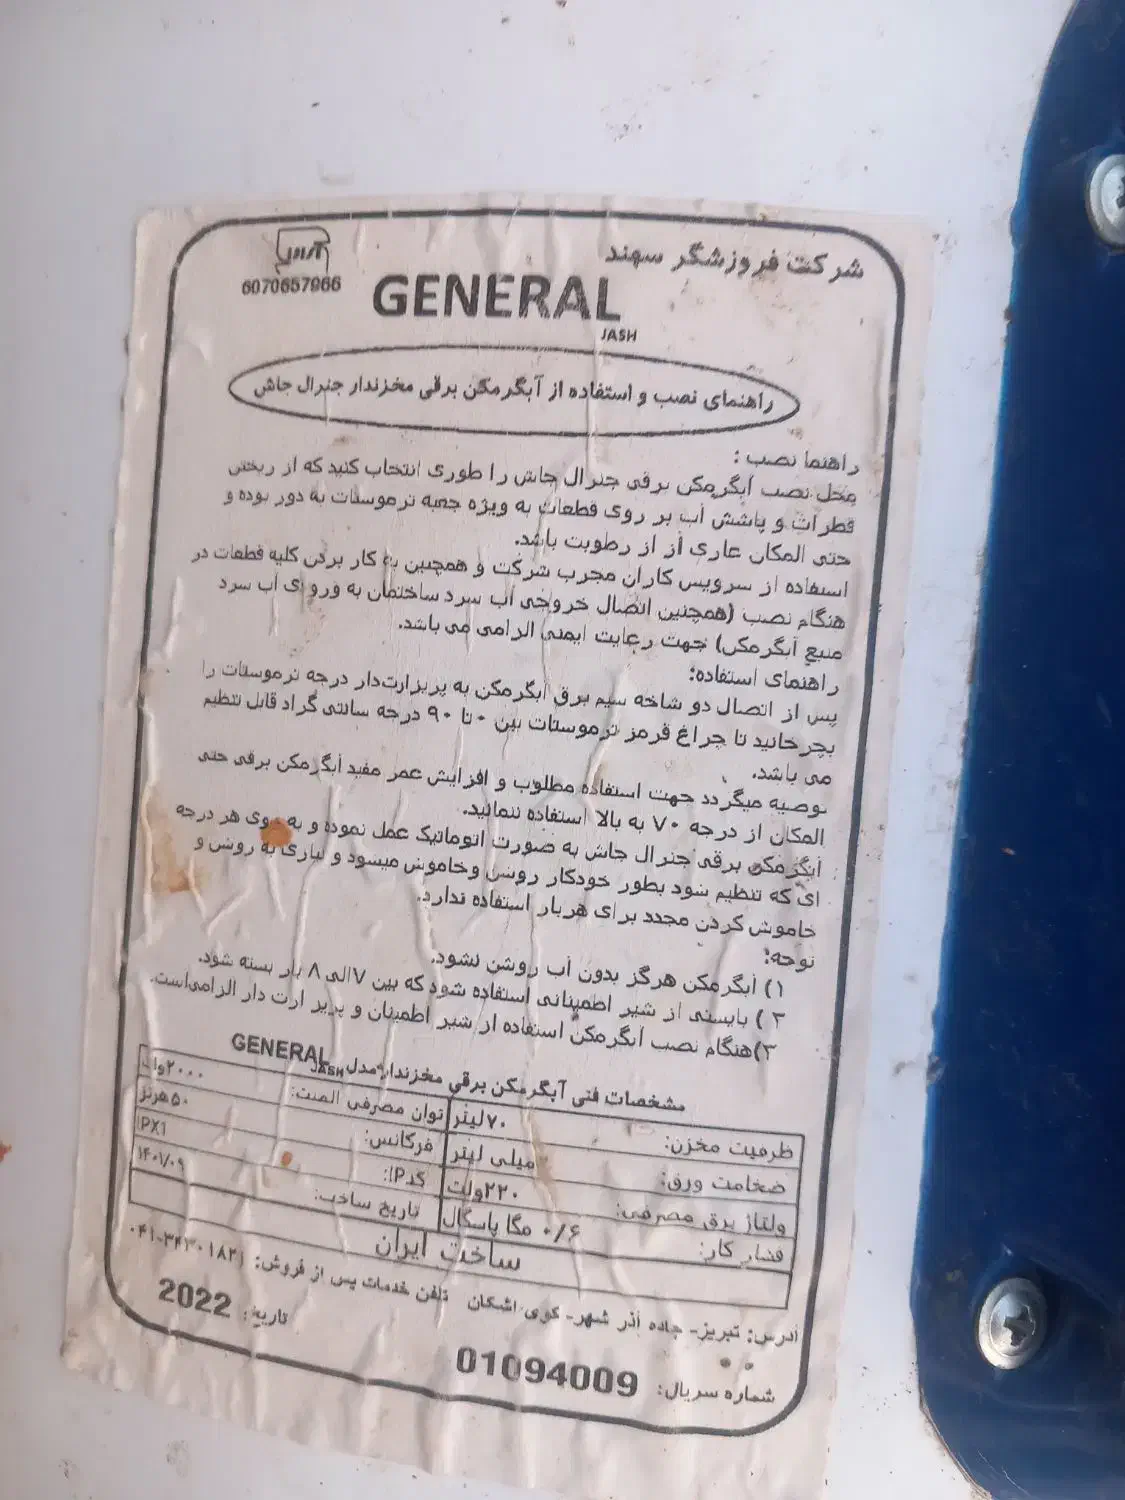 شرکت فروزشگر سهند
آرم
6070657966
GENERAL
JASH
راهنمای نصب و استفاده از آبگرمکن برقی مخزندار جنرال جاش
راهنما نصب :
محل نصب آبگرمکن برقی جنرال جاش را طوری انتخاب کنید که از ریختن
قطرات و پاشش آب بر روی قطعات به ویژه جعبه ترموستات به دور بوده و
حتی المکان عاری از از رطوبت باشد.
استفاده از سرویس کاران مجرب شرکت و همچنین به کار بردن کلیه قطعات در
هنگام نصب (همچنین اتصال خروجی آب سرد ساختمان به ورودی آب سرد
منبع آبگرمکن) جهت رعایت ایمنی الزامی می باشد.
راهنمای استفاده:
پس از اتصال دو شاخه سیم برق آبگرمکن به پریزارت‌دار درجه ترموستات را
بچرخانید تا چراغ قرمز ترموستات بین ۰ تا ۹۰ درجه سانتی گراد قابل تنظیم
می باشد.
توصیه میگردد جهت استفاده مطلوب و افزایش عمر مفید آبگرمکن برقی حتی
المکان از درجه ۷۰ به بالا استفاده ننمائید.
آبگرمکن برقی جنرال جاش به صورت اتوماتیک عمل نموده و به روی هر درجه
ای که تنظیم شود بطور خودکار روشن وخاموش میشود و نیازی به روشن و
خاموش کردن مجدد برای هربار استفاده ندارد.
توجه:
۱) آبگرمکن هرگز بدون آب روشن نشود.
۲ ) بایستی از شیر اطمینانی استفاده شود که بین ۷الی ۸ بار بسته شود.
۳)هنگام نصب آبگرمکن استفاده از شیر اطمینان و پریز ارت دار الزامی‌است.
مشخصات فنی آبگرمکن برقی مخزندار مدل GENERAL JASH
ظرفیت مخزن: ۷۰لیتر توان مصرفی المنت: ۲۰۰۰وات
ضخامت ورق: میلی لیتر فرکانس: ۵۰هرتز
ولتاژ برق مصرفی: ۲۲۰ولت کدIP: IPX1
فشار کار: ۰/۶ مگا پاسگال تاریخ ساخت: ۱۴۰۱/۰۹
ساخت ایران
آدرس: تبریز- جاده آذر شهر- کوی اشکان تلفن خدمات پس از فروش: ۰۴۱-۳۴۳۰۱۸۲۱
تاریخ: 2022
شماره سریال: 01094009